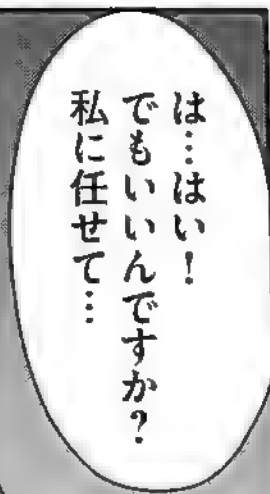 は…はい！
でもいいんですか？
私に任せて…